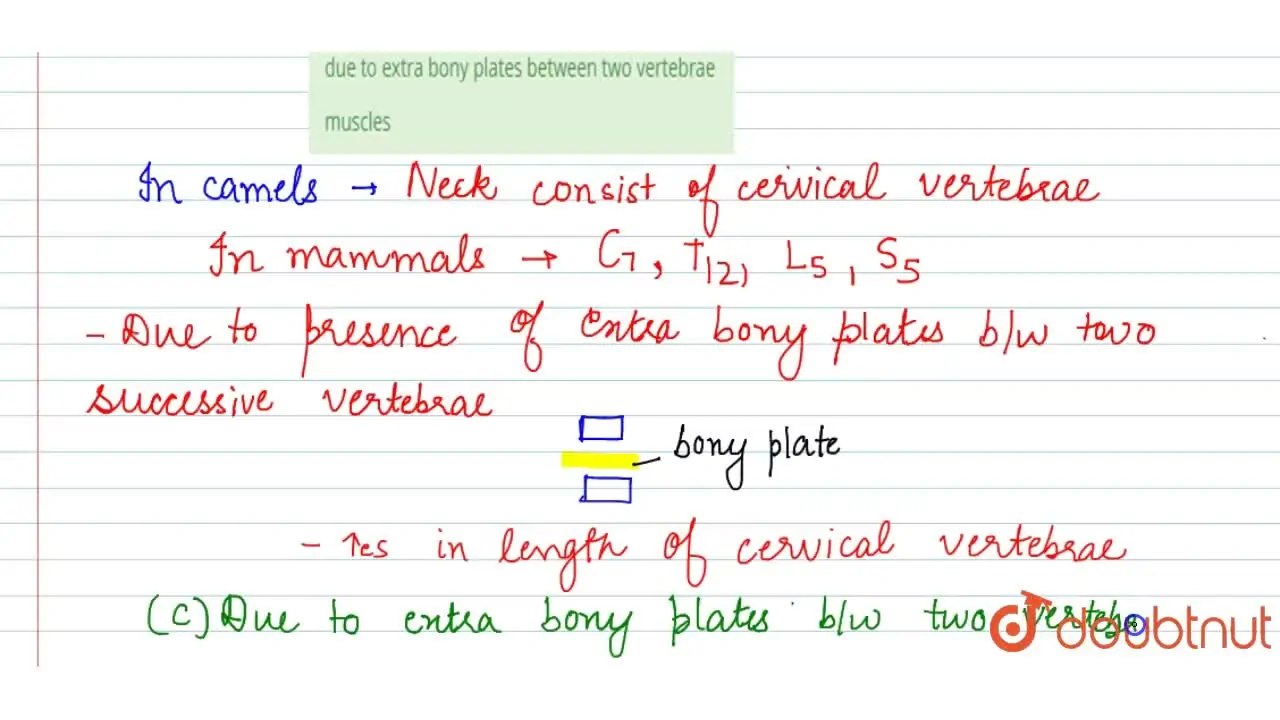 due to extra bony plates between two vertebrae
muscles
In camels → Neck consist of cervical vertebrae
In mammals → C7, T12, L5, S5
- Due to presence of extra bony plates b/w two
successive vertebrae
bony plate
- ↑es in length of cervical vertebrae
(C) Due to extra bony plates b/w two vertebra
doubtnut